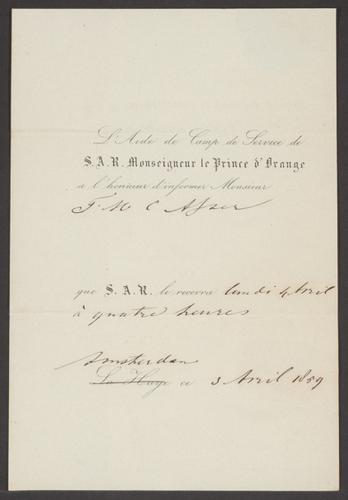 L'Aide de Camp de Service de
S. A. R. Monseigneur le Prince d'Orange
a l'honneur d'informer Monsieur
T. M. C Asser
que S. A. R. le recevra lundi 4 Avril
à quatre heures
Amsterdam
La Haye ce 3 Avril 1859